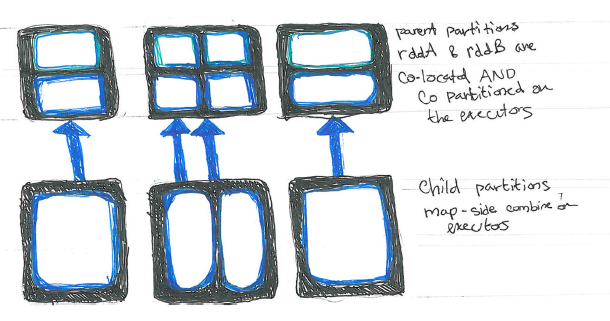 parent partitions
rddA & rddB are
Co-located AND
Co partitioned on
the executors
Child partitions
map-side combine on
executors